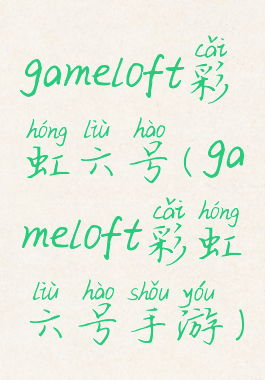 cǎi
gameloft彩
hóng liù hào
虹六号(ga
cǎi hóng
meloft彩虹
liù hào shǒu yóu
六号手游)